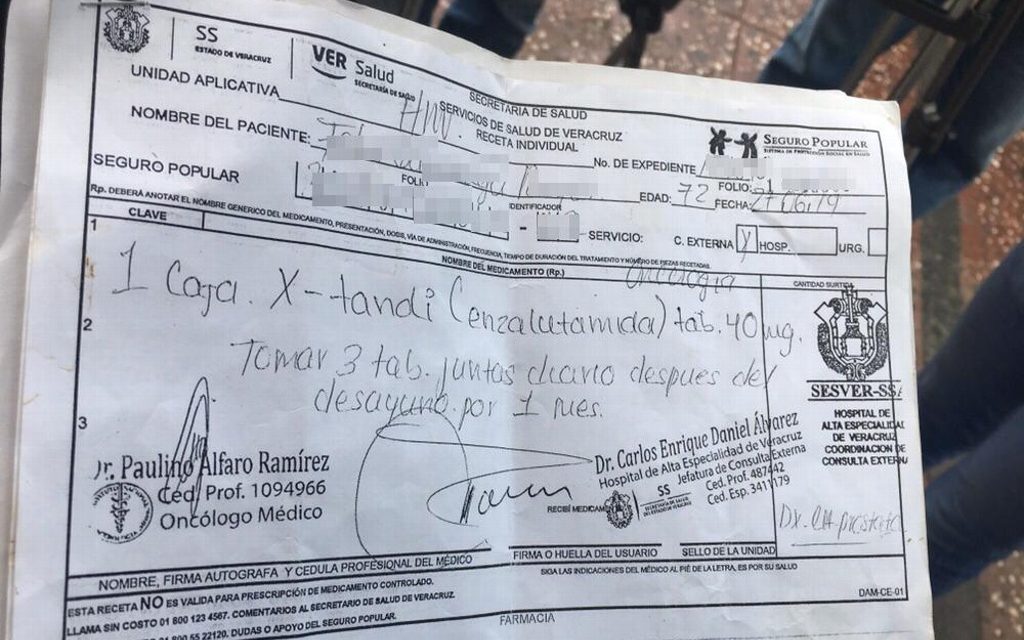 SS
ESTADO DE VERACRUZ
VER Salud
SECRETARÍA DE SALUD
SECRETARIA DE SALUD
SERVICIOS DE SALUD DE VERACRUZ
RECETA INDIVIDUAL
SEGURO POPULAR
SISTEMA DE PROTECCIÓN SOCIAL EN SALUD
UNIDAD APLICATIVA
NOMBRE DEL PACIENTE:
No. DE EXPEDIENTE
SEGURO POPULAR
FOLIO
IDENTIFICADOR
EDAD: 72
FOLIO:
FECHA: 27/06/19
SERVICIO:
C. EXTERNA
HOSP.
URG.
Rp. DEBERÁ ANOTAR EL NOMBRE GENERICO DEL MEDICAMENTO, PRESENTACIÓN, DOSIS, VÍA DE ADMINISTRACIÓN, FRECUENCIA, TIEMPO DE DURACIÓN DEL TRATAMIENTO Y NÚMERO DE PIEZAS RECETADAS.
1
CLAVE
NOMBRE DEL MEDICAMENTO (Rp.)
Oncología
CANTIDAD SURTIDA
1 Caja. X-tandi (enzalutamida) tab. 40 mg.
2
Tomar 3 tab. juntas diario despues del
desayuno. por 1 mes.
3
SESVER-SSA
HOSPITAL DE
ALTA ESPECIALIDAD
DE VERACRUZ
COORDINACION DE
CONSULTA EXTERNA
Dr. Paulino Alfaro Ramírez
Ced. Prof. 1094966
Oncólogo Médico
Dr. Carlos Enrique Daniel Álvarez
Hospital de Alta Especialidad de Veracruz
Jefatura de Consulta Externa
Ced. Prof. 487442
Ced. Esp. 3411179
SS
RECIBÍ MEDICAM
NOMBRE, FIRMA AUTOGRAFA Y CEDULA PROFESIONAL DEL MÉDICO
FIRMA O HUELLA DEL USUARIO
SELLO DE LA UNIDAD
SIGA LAS INDICACIONES DEL MÉDICO AL PIE DE LA LETRA, ES POR SU SALUD
ESTA RECETA NO ES VALIDA PARA PRESCRIPCIÓN DE MEDICAMENTO CONTROLADO.
DAM-CE-01
LLAMA SIN COSTO 01 800 123 4567. COMENTARIOS AL SECRETARIO DE SALUD DE VERACRUZ.
01 800 55 22120. DUDAS O APOYO DEL SEGURO POPULAR.
FARMACIA